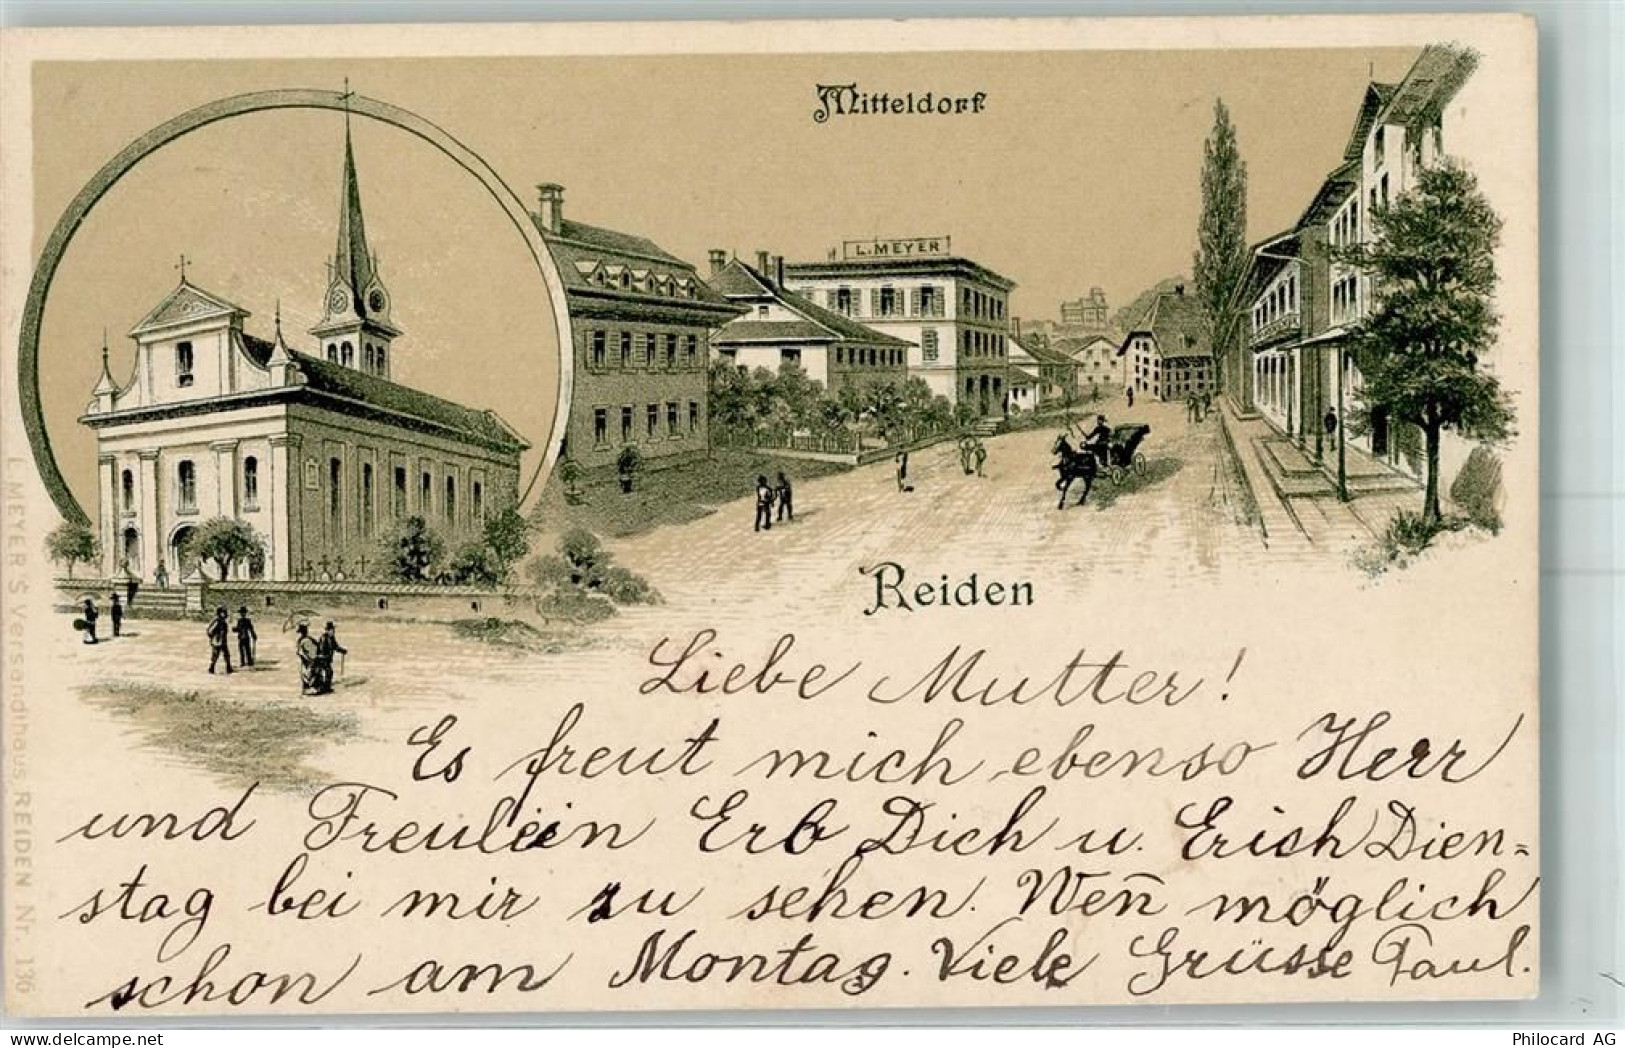 Mitteldorf
L. MEYER
Reiden
Liebe Mutter!
Es freut mich ebenso Herr
und Freulein Erb Dich u. Erich Dien=
stag bei mir zu sehen. Wen̄ möglich
schon am Montag. Viele Grüsse Paul.
L. MEYER'S Versandhaus REIDEN Nr. 136
Philocard AG